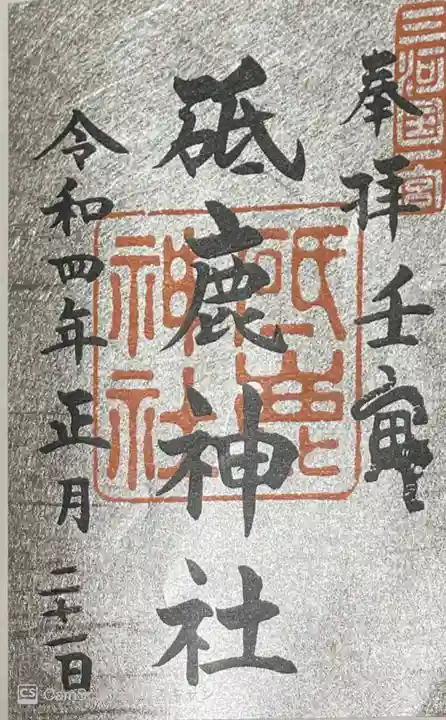 三河國一宮
奉拝 壬寅
砥鹿神社
砥鹿
神社
令和四年正月二十一日
CS CamS